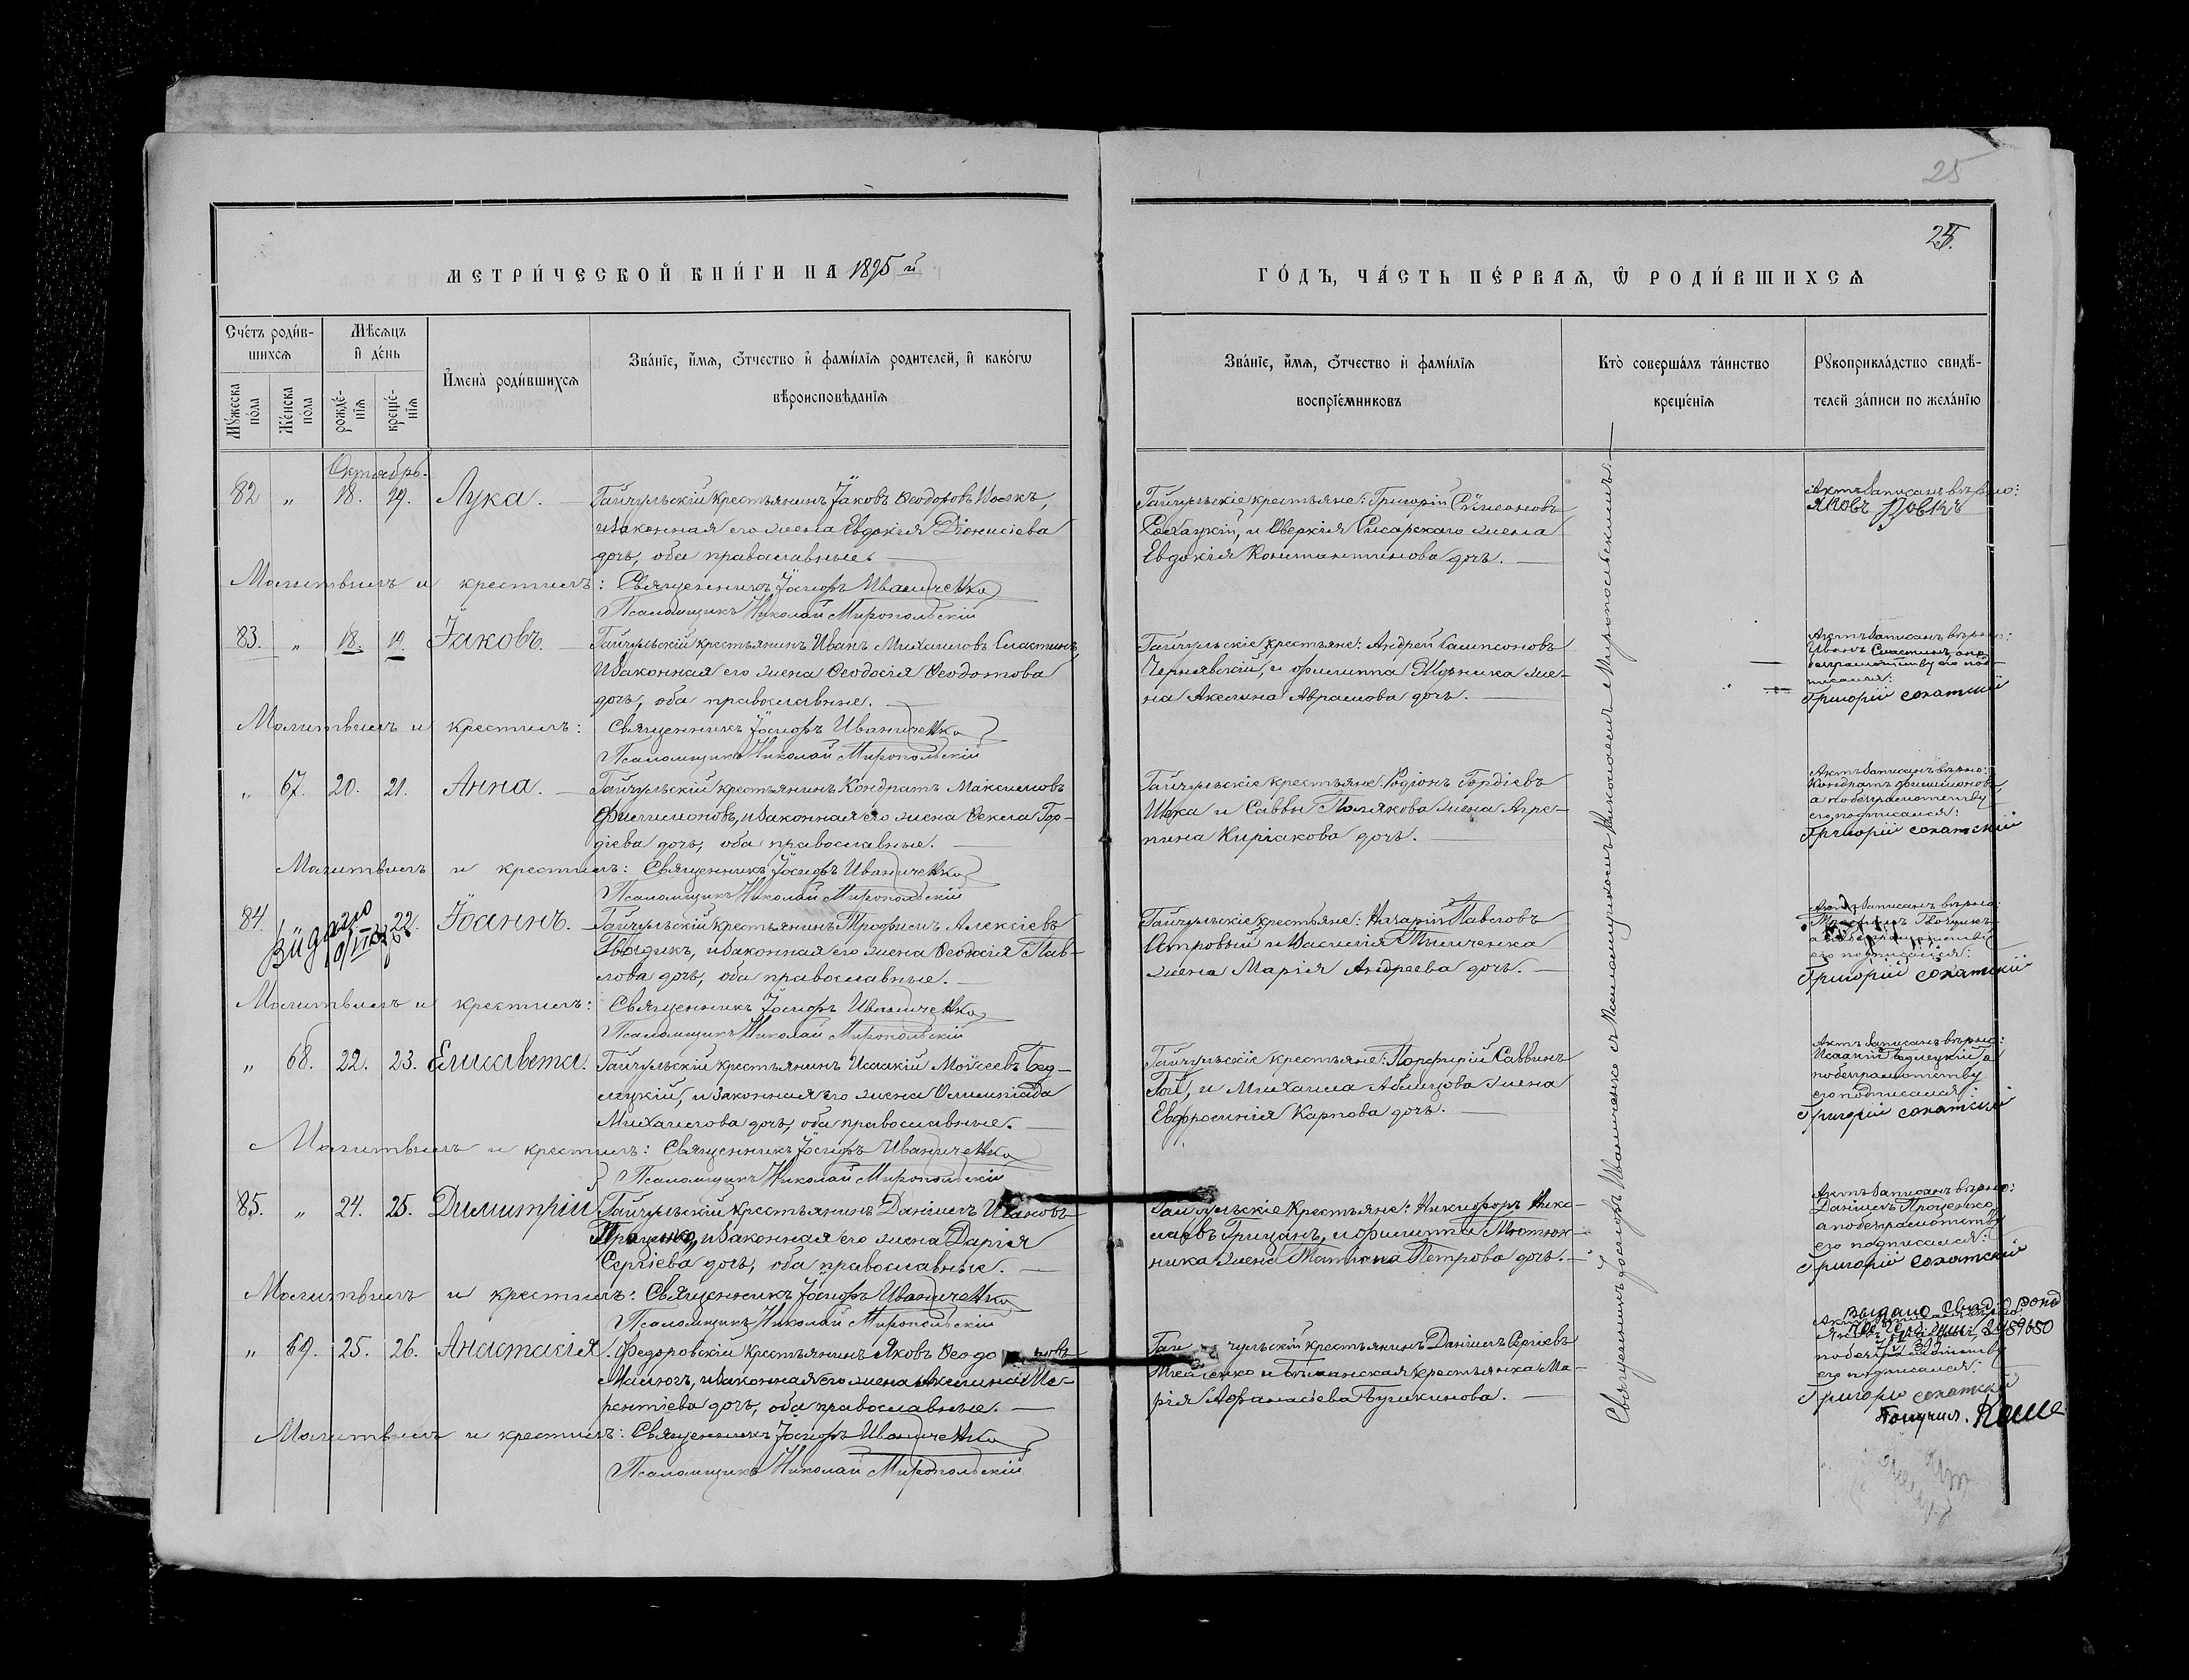 25
24.
МЕТРИ́ЧЕСКОЙ КНИ́ГИ НА 1895 й
ГО́ДЪ, ЧА́СТЬ ПЕ́РВАѦ, Ѿ РОДИ́ВШИХСѦ
Счетъ роди́в-
шихсѧ
Мѣсѧцъ
и҆ де́нь
Мꙋжеска
по́ла
Же́нска
по́ла
рожде́-
нїѧ
креще́-
нїѧ
И҆мена̀ роди́вшихсѧ
Зва́нїе, и҆́мѧ, ѻ҆́тчество и҆ фами́лїѧ родителей, и҆ како́гѡ
вѣроисповѣ́данїѧ
Зва́нїе, и҆́мѧ, ѻ҆́тчество и҆ фами́лїѧ
воспрїе́мниковъ
Кто̀ соверша́лъ та́инство
креще́нїѧ
Рꙋкоприкла́дство свидѣ́-
телей за́писи по жела́нїю
Октябрь.
82 „ 18. 19. Лука. — Гайчульскій крестьянинъ Іаковъ Ѳеодотовъ
и законная его жена Евдокія Діонисіева
дочь, оба православные. —
Гайчульскіе крестьяне: Григорій Сѵмеоновъ
Сохацкій, и жена
Евдокія Константинова дочь. —
Актъ записанъ вѣрно:
Яковъ Вовкъ
Молитвилъ и крестилъ: Священникъ Іосифъ Иваниченко
Псаломщикъ Николай Миропольскій
83. „ 18. 19. Іаковъ. — Гайчульскій крестьянинъ Иванъ Михаиловъ Сластинъ,
и законная его жена Ѳеодосія Ѳеодотова
дочь, оба православные. —
Гайчульскіе крестьяне: Андрей Сампсоновъ
Чернявскій, и Филиппа же-
на Акелина Аврамова дочь. —
Актъ записанъ вѣрно:
Иванъ Сластинъ, а по
безграмотству его под-
писался:
Григорій Сохатскій
Молитвилъ и крестилъ: Священникъ Іосифъ Иваниченко
Псаломщикъ Николай Миропольскій
„ 67. 20. 21. Анна. — Гайчульскій крестьянинъ Кондратъ Максимовъ
Филимоновъ, и законная его жена Ѳекла Гор-
діева дочь, оба православные. —
Гайчульскіе крестьяне: Родіонъ Гордіевъ
и Саввы Полякова жена Агре-
пина Киріакова дочь. —
Актъ записанъ вѣрно:
Кондратъ Филимоновъ
а по безграмотству
его подписался:
Григорій Сохатскій
Молитвилъ и крестилъ: Священникъ Іосифъ Иваниченко
Псаломщикъ Николай Миропольскій
84. 22. Іоаннъ. — Гайчульскій крестьянинъ Трофимъ Алексіевъ
Видано
Гвоздикъ, и законная его жена Ѳеодосія Пав-
лова дочь, оба православные. —
Гайчульскіе крестьяне: Назарій Павловъ
и Василія Тимченка
жена Марія Андреева дочь. —
Актъ записанъ вѣрно:
Трофимъ Гвоздикъ
а по безграмотству
его подписался:
Григорій Сохатскій
Молитвилъ и крестилъ: Священникъ Іосифъ Иваниченко
Псаломщикъ Николай Миропольскій
„ 68. 22. 23. Елисавета. Гайчульскій крестьянинъ Исаакій Моисеевъ Бед-
лецкій, и законная его жена Олимпіада
Михаилова дочь, оба православные. —
Гайчульскіе крестьяне: Порфирій Саввинъ
Гой, и Михаила жена
Евфросинія Карпова дочь. —
Актъ записанъ вѣрно:
Исаакій Бедлецкій а
по безграмотству
его подписался:
Григорій Сохатскій
Молитвилъ и крестилъ: Священникъ Іосифъ Иваниченко
Псаломщикъ Николай Миропольскій
85. „ 24. 25. Димитрій Гайчульскій крестьянинъ Даніилъ Исаковъ
Проценко, и законная его жена Дарія
Сергіева дочь, оба православные. —
Гайчульскіе крестьяне: Никифоръ Нико-
лаевъ Грицанъ, и Филиппа Мютюн-
ника жена Матрона Петрова дочь. —
Актъ записанъ вѣрно:
Даніилъ Проценко
а по безграмотству
его подписался:
Григорій Сохатскій
Молитвилъ и крестилъ: Священникъ Іосифъ Иваниченко
Псаломщикъ Николай Миропольскій
„ 69. 25. 26. Анастасія. Федоровскій крестьянинъ Яковъ
и законная его жена Акелина Ме-
рентіева дочь, оба православные. —
Гайчульскій крестьянинъ Даніилъ Сергіевъ
и крестьянка Ма-
рія Афанасіева Бушкинова. —
выдано
по безграмотству
его подписался:
Григорій Сохатскій
Получил.
Молитвилъ и крестилъ: Священникъ Іосифъ Иваниченко
Псаломщикъ Николай Миропольскій
Священникъ Іосифъ Иваниченко съ Псаломщикомъ Николаемъ Миропольскимъ. —